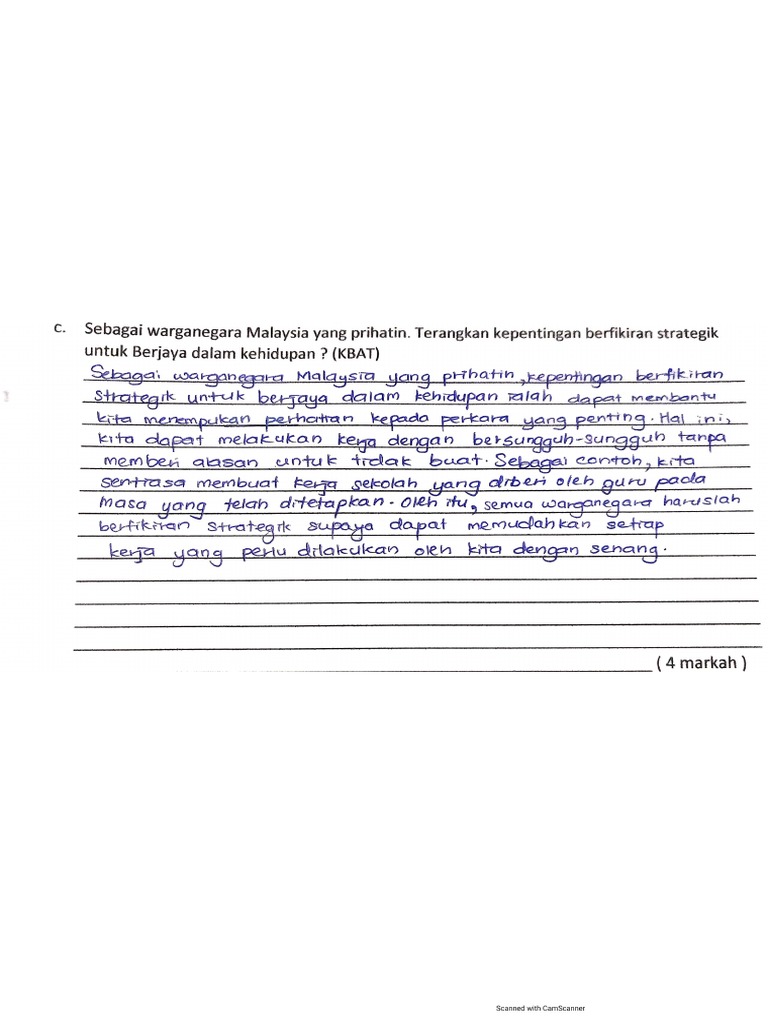 c. Sebagai warganegara Malaysia yang prihatin. Terangkan kepentingan berfikiran strategik
untuk Berjaya dalam kehidupan ? (KBAT)
Sebagai warganegara Malaysia yang prihatin, kepentingan berfikiran
strategik untuk berjaya dalam kehidupan ialah dapat membantu
kita menempukan perhatian kepada perkara yang penting. Hal ini,
kita dapat melakukan kerja dengan bersungguh-sungguh tanpa
memberi alasan untuk tidak buat. Sebagai contoh, kita
sentiasa membuat kerja sekolah yang diberi oleh guru pada
masa yang telah ditetapkan. Oleh itu, semua warganegara haruslah
berfikiran strategik supaya dapat memudahkan setiap
kerja yang perlu dilakukan oleh kita dengan senang.
( 4 markah )
Scanned with CamScanner